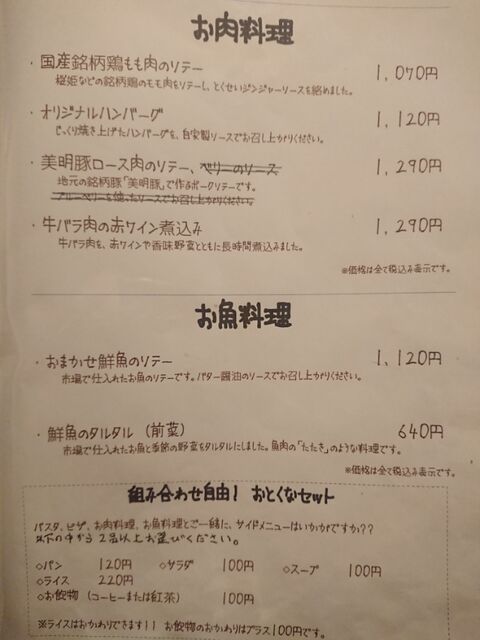 お肉料理
・国産銘柄鶏もも肉のソテー 1,070円
桜姫などの銘柄鶏のもも肉をソテーし、とくせいジンジャーソースを絡めました。
・オリジナルハンバーグ 1,120円
じっくり焼き上げたハンバーグを、自家製ソースでお召し上がりください。
・美明豚ロース肉のソテー、ベリーのソース 1,290円
地元の銘柄豚「美明豚」で作るポークソテーです。
ブルーベリーを使ったソースでお召し上がりください。
・牛バラ肉の赤ワイン煮込み 1,290円
牛バラ肉を、赤ワインや香味野菜とともに長時間煮込みました。
※価格は全て税込み表示です。
お魚料理
・おまかせ鮮魚のソテー 1,120円
市場で仕入れたお魚のソテーです。バター醤油のソースでお召し上がりください。
・鮮魚のタルタル (前菜) 640円
市場で仕入れたお魚と季節の野菜をタルタルにしました。魚肉の「たたき」のような料理です。
※価格は全て税込み表示です。
組み合わせ自由! おとくなセット
パスタ、ピザ、お肉料理、お魚料理とご一緒に、サイドメニューはいかがですか??
以下の中から2品以上お選びください。
◇パン 120円 ◇サラダ 100円 ◇スープ 100円
◇ライス 220円
◇お飲物 (コーヒーまたは紅茶) 100円
※ライスはおかわりできます!! お飲物のおかわりはプラス100円です。